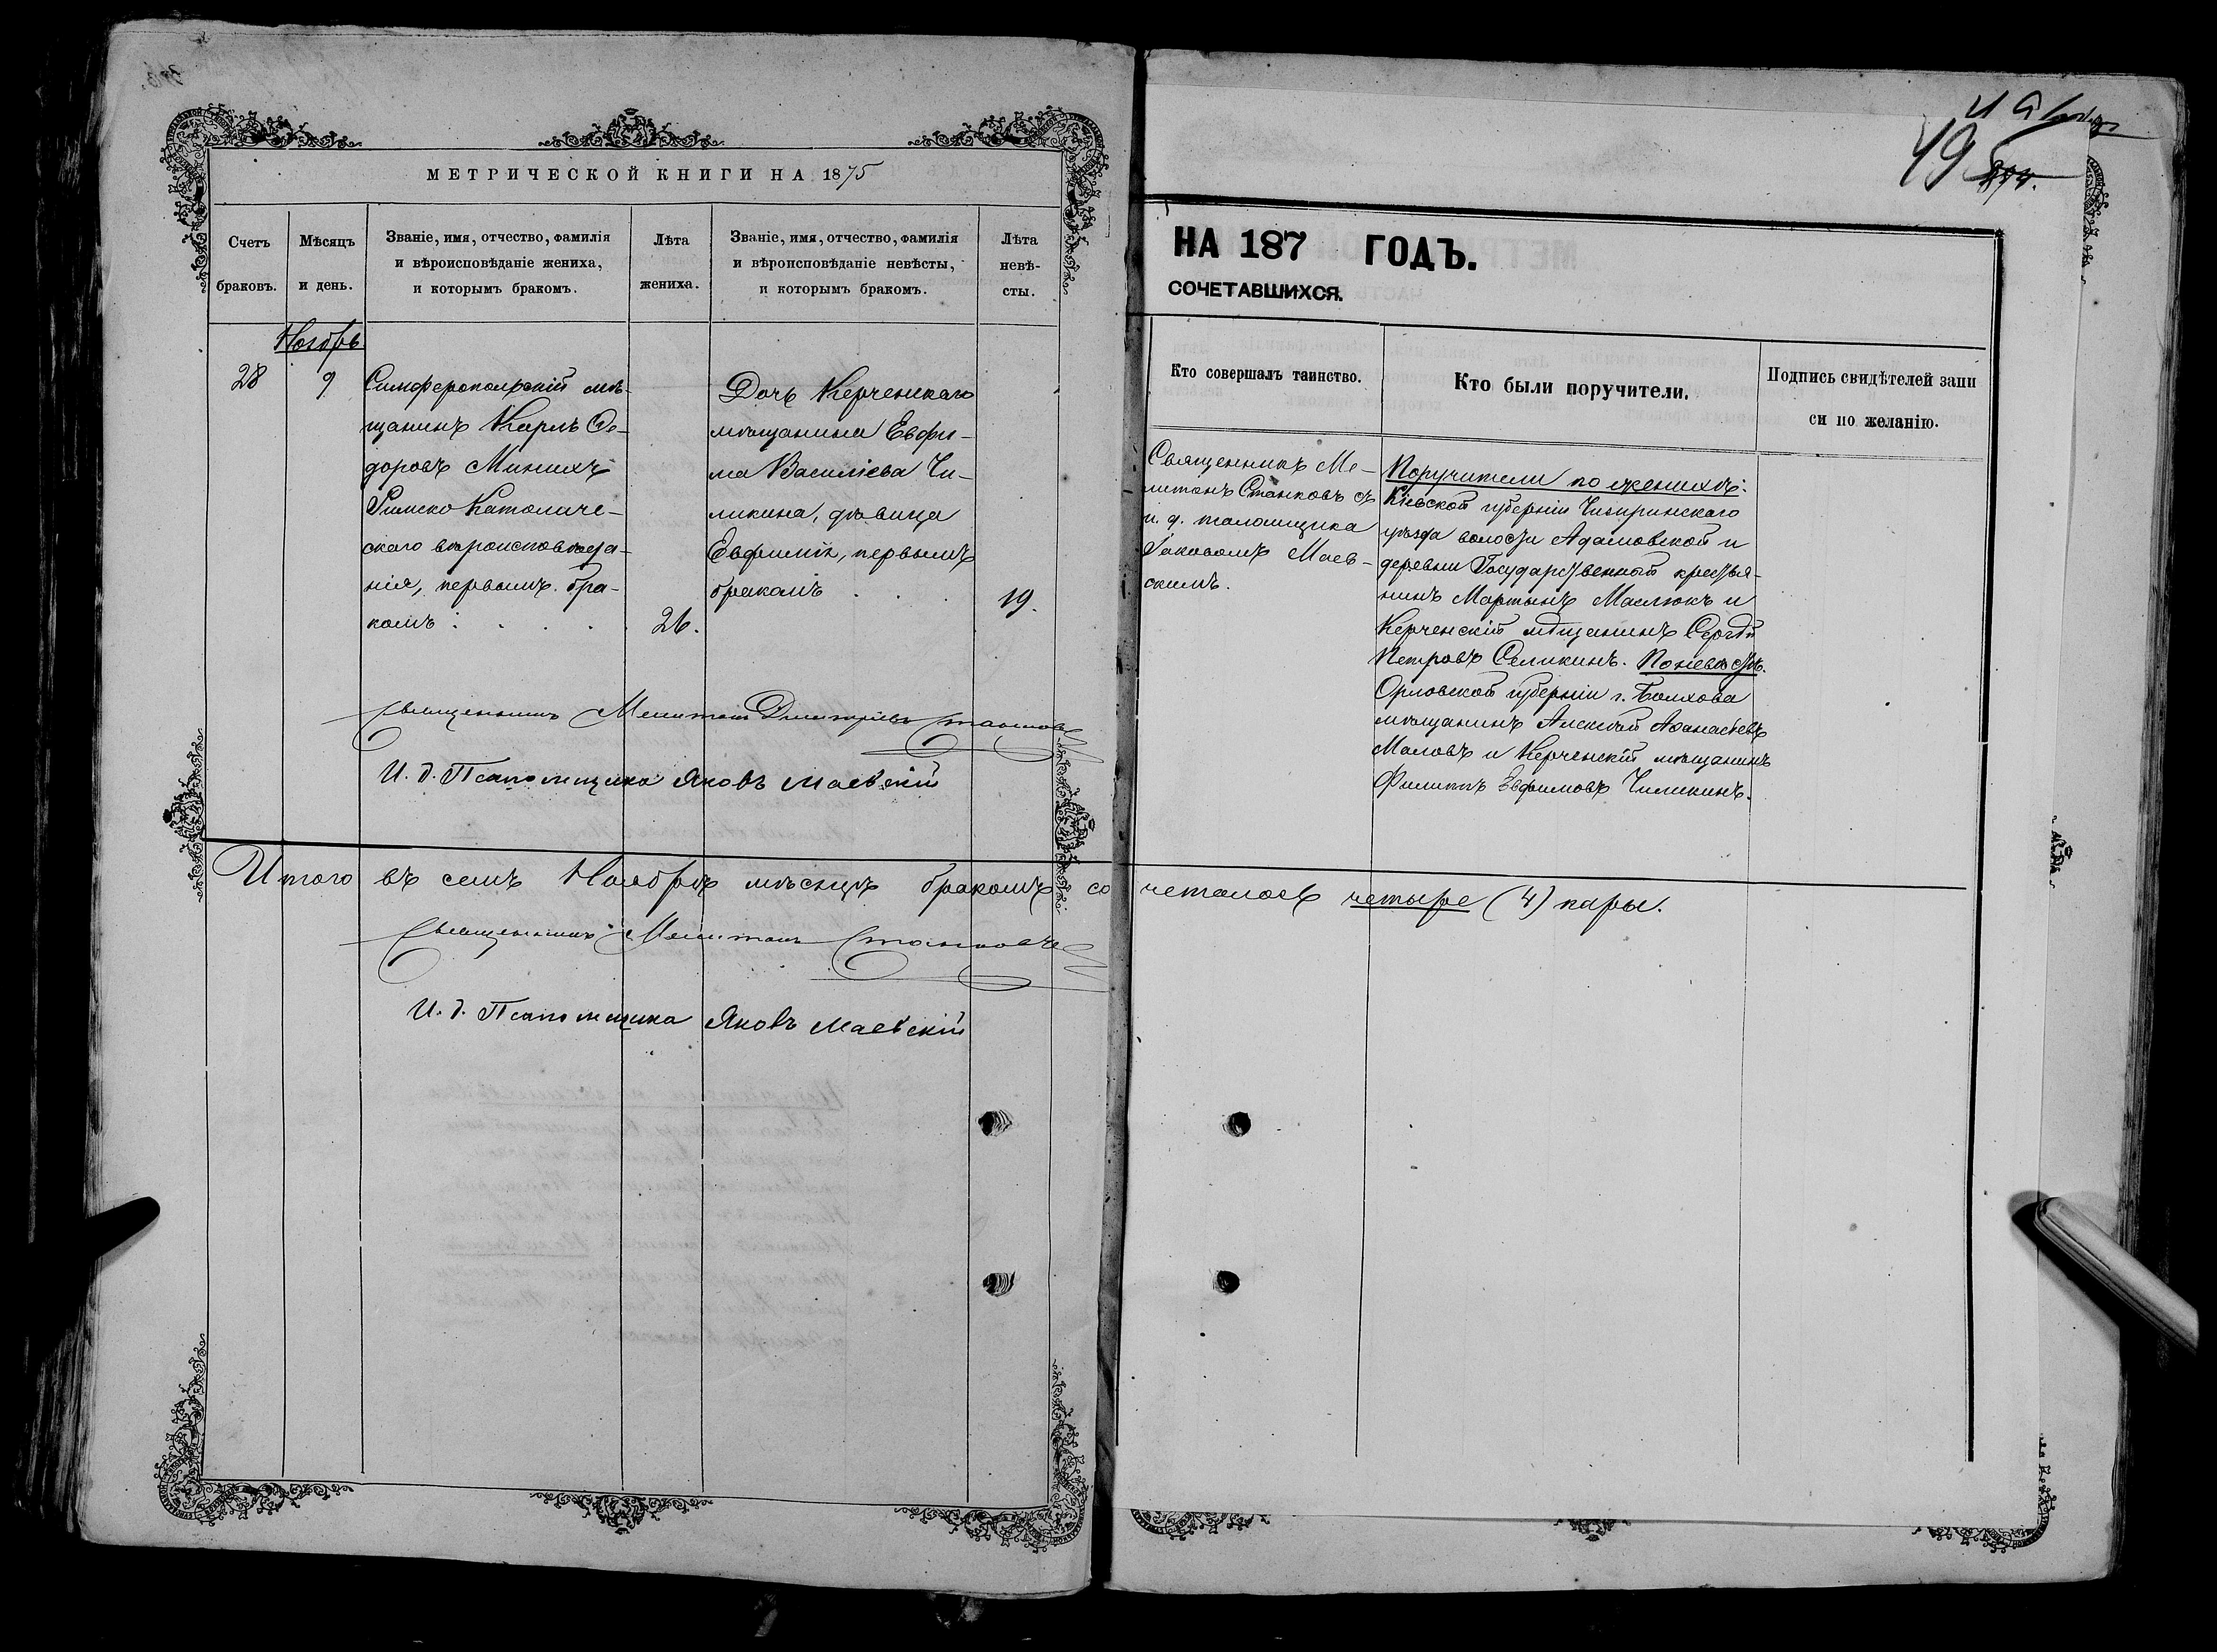 МЕТРИЧЕСКОЙ КНИГИ НА 1875
Счетъ браковъ.
Мѣсяцъ и день.
Званіе, имя, отчество, фамилія
и вѣроисповѣданіе жениха,
и которымъ бракомъ.
Лѣта жениха.
Званіе, имя, отчество, фамилія
и вѣроисповѣданіе невѣсты,
и которымъ бракомъ.
Лѣта
невѣ-
сты.
Ноябрь
28
9
Симферопольскій мѣ-
щанинъ Карлъ Ѳе-
доровъ Минихъ
Римско Католиче-
скаго вѣроисповѣда-
нія, первымъ бра-
комъ . . . .
26.
Дочь Керченскаго
мѣщанина Евфи-
ма Василіева Чи-
ликина, дѣвица
Евфимія, первымъ
бракомъ . . .
19.
Священникъ Мелитонъ Димитріевъ Станковъ
И. д. Псаломщика Яковъ Маевскій
Итого въ семъ Ноябрѣ мѣсяцѣ бракомъ со
Священникъ Мелитонъ Станковъ
И. д. Псаломщика Яковъ Маевскій
495
НА 187 ГОДЪ.
СОЧЕТАВШИХСЯ.
Кто совершалъ таинство.
Кто были поручители.
Подпись свидѣтелей запи
си по желанію.
Священникъ Ме-
литонъ Станковъ съ
и. д. псаломщика
Іаковомъ Маев-
скимъ.
Поручители по женихѣ:
Кіевской губерніи Чигиринскаго
уѣзда волости Адамовской и
деревни Государственный крестья-
нинъ Мартынъ Маслюкъ и
Керченскій мѣщанинъ Сергѣй
Петровъ Селикинъ. По невѣстѣ.
Орловской губерніи г. Болхова
мѣщанинъ Алексѣй Аѳанасьевъ
Маловъ и Керченскій мѣщанинъ
Филиппъ Евфимовъ Чиликинъ.
четалось четыре (4) пары.